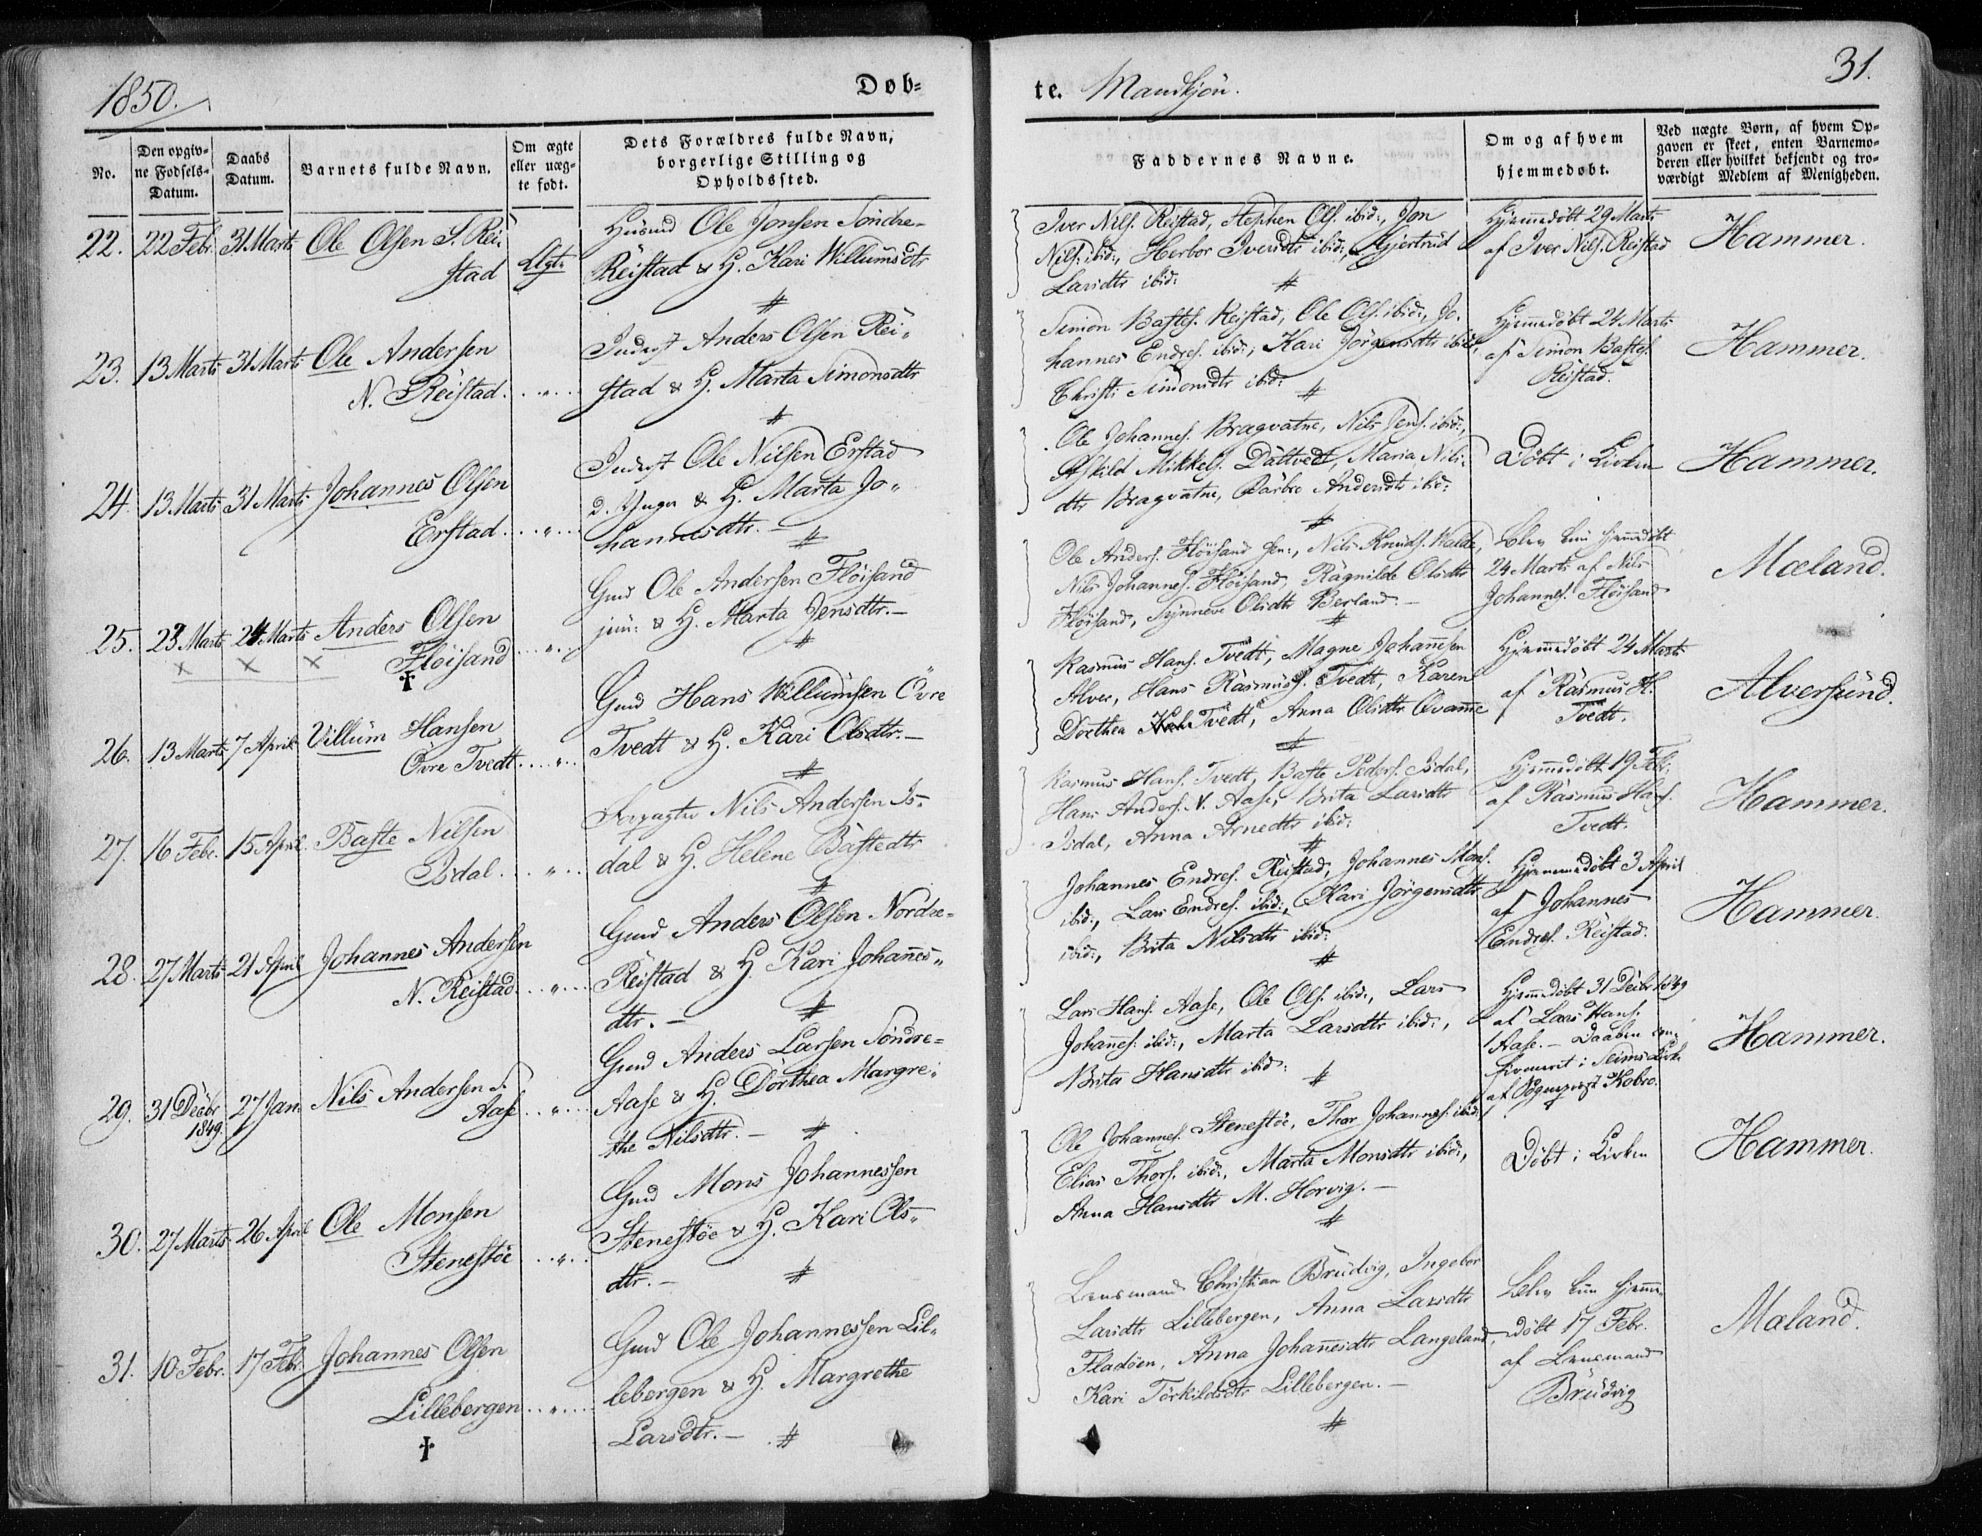 1850.
Døb-
No.
Den opgiv-
ne Fødsels-
Datum.
Daabs
Datum.
Barnets fulde Navn.
Om ægte
eller uæg-
te født.
Dets Forældres fulde Navn,
borgerlige Stilling og
Opholdssted.
22. 22 Febr. 31 Marts Ole Olsen S. Rei- Ægte Husmd Ole Jonsen Söndre-
stad Reistad & H. Kari Willumsdtr
23. 13 Marts 31 Marts Ole Andersen Inderst Anders Olsen Rei-
N. Reistad. stad & H. Marta Simonsdtr
24. 13 Marts 31 Marts Johannes Olsen Inderst Ole Nilsen Erstad
Erstad. d. Yngr & H. Marta Jo-
hannesdtr. -
25. 23 Marts 24 Marts Anders Olsen Gmd Ole Andersen Flöisand
Flöisand jun: & H. Marta Jensdtr. -
†
26. 13 Marts 7 April Villum Hansen Gmd Hans Willumsen Övre
Övre Tvedt Tvedt & H. Kari Olsdtr. -
27. 16 Febr. 15 April Baste Nilsen Forpagter Nils Andersen Is-
Isdal. dal & H. Helene Bastedtr
28. 27 Marts 21 April Johannes Andersen Gmd Anders Olsen Nordre-
N. Reistad Reistad & H. Kari Johannes-
dtr. -
29. 31 Decbr 1849. 27 Jan. Nils Andersen S. Gmd Anders Larsen Söndre-
Aase Aase & H. Dorthea Margre-
the Nilsdtr. -
30. 27 Marts 26 April Ole Monsen Gmd Mons Johannessen
Stenestöe Stenestöe & H. Kari Ols-
dtr. -
31. 10 Febr. 17 Feb. Johannes Olsen Gmd Ole Johannessen Lil-
Lillebergen lebergen & H. Margrethe
† Larsdtr. -
te. Mandkjön.
31.
Faddernes Navne.
Om og af hvem
hjemmedøbt.
Ved uægte Børn, af hvem Op-
gaven er skeet, enten Barnemo-
deren eller hvilket bekjendt og tro-
værdigt Medlem af Menigheden.
Iver Nils. Reistad, Stephen Ols. ibid:, Jon
Nils. ibid:, Herbor Iversdtr ibid:, Gjertrud
Larsdtr ibid:
Hjemmedöbt 29 Marts
af Iver Nils. Reistad
Hammer.
Simon Bastes. Reistad, Ole Ols. ibid:, Jo-
hannes Endres. ibid:, Kari Jörgensdtr ibid:,
Christi Simonsdtr ibid:
Hjemmedöbt 24 Marts
af Simon Bastes.
Reistad.
Hammer.
Ole Johannes. Bragvatne, Nils Jens. ibid:,
Askild Mikkels. Dattvedt, Maria Nils-
dtr Bragvatne, Barbro Andersdtr ibid:
Döbt i Kirken
Hammer.
Ole Anders. Flöisand sen:, Nils Knuds. Walde,
Nils Johannes. Flöisand, Ragnilde Olsdtr
Flöisand, Synneve Olsdtr Berland. -
Blev kun hjemmedöbt
24 Marts af Nils
Johannes. Flöisand
Mæland.
Rasmus Hans. Tvedt, Magne Johannesen
Alver, Hans Rasmus. Tvedt, Karen
Dorthea Tvedt, Anna Olsdtr Qvamme
Hjemmedöbt 24 Marts
af Rasmus H.
Tvedt.
Alversund.
Rasmus Hans. Tvedt, Baste Peders. Isdal,
Hans Anders. V. Aase, Brita Larsdtr
Isdal, Anna Arnedtr ibid:
Hjemmedöbt 19 Feb:
af Rasmus Hans.
Tvedt.
Hammer.
Johannes Endres. Reistad, Johannes Mons.
ibid:, Lars Endres. ibid:, Kari Jörgensdtr
ibid:, Brita Nilsdtr ibid:
Hjemmedöbt 3 April
af Johannes
Endres. Reistad.
Hammer.
Lars Hans. Aase, Ole Ols. ibid:, Lars
Johannes. ibid:, Marta Larsdtr ibid:,
Brita Hansdtr ibid:
Hjemmedöbt 31 Decbr 1849
af Lars Hans.
Aase. - Daaben con-
firmeret i Seims Kirke
af Sognepræst Kobro.
Hammer.
Ole Johannes. Stenestöe, Thor Johannes. ibid:
Elias Thors. ibid:, Marta Monsdtr ibid:,
Anna Hansdtr M. Horvig. -
Döbt i Kirken
Hammer.
Lensmand Christian Brudvig, Ingebor
Larsdtr Lillebergen, Anna Larsdtr
Fladöen, Anna Johannesdtr Langeland,
Kari Torkildsdtr Lillebergen. -
Blev kun hjemme-
döbt 17 Febr.
af Lensmand
Brudvig
Mæland.